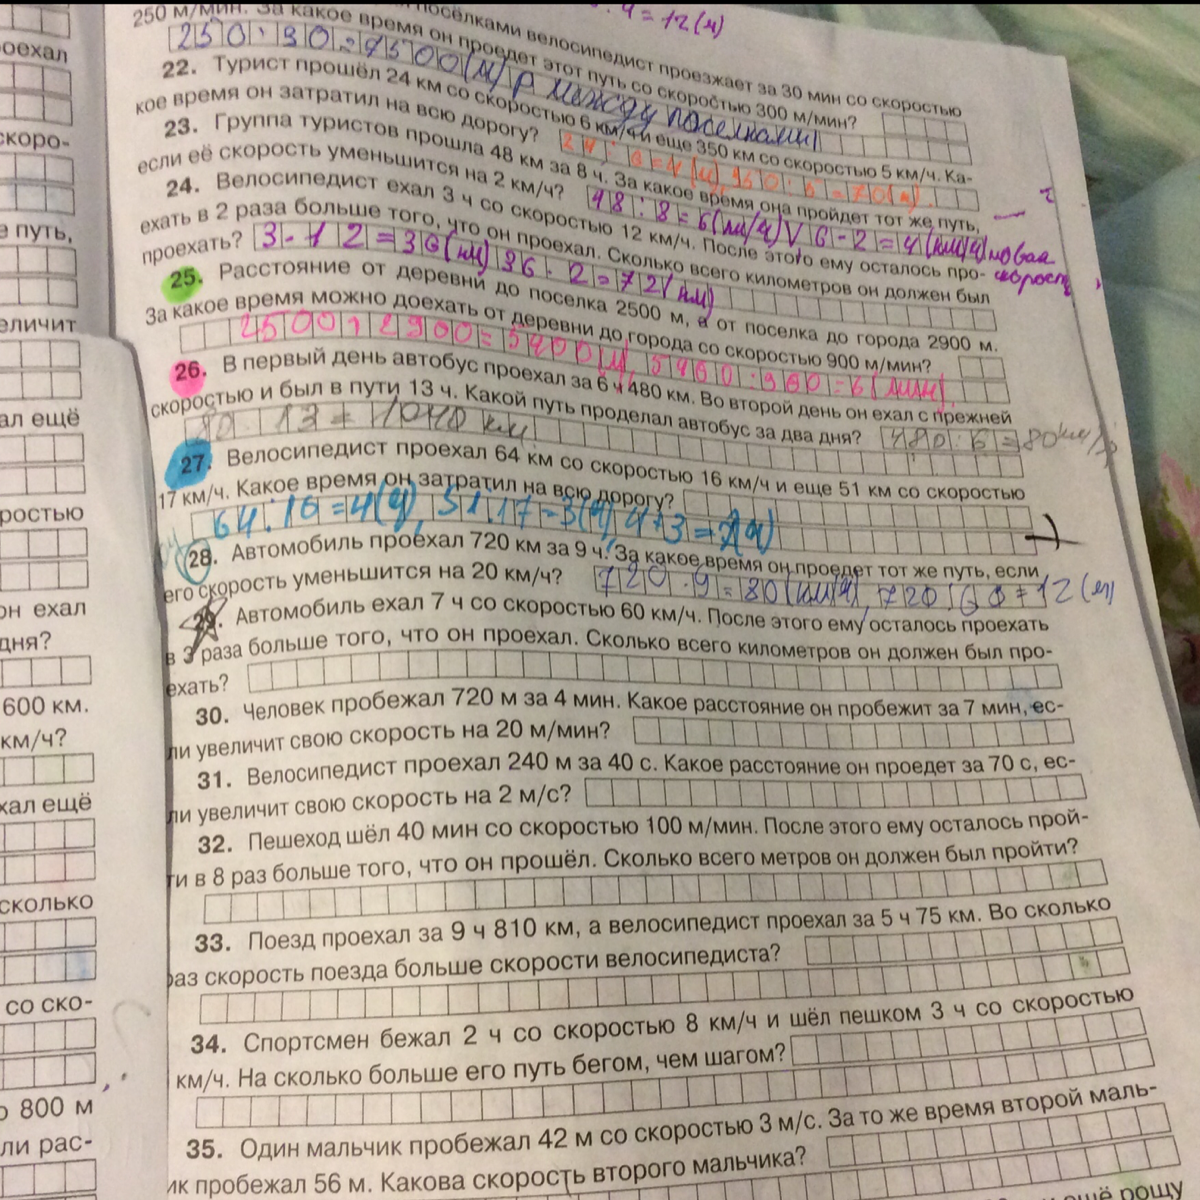 : 4 = 12 (м)
посёлками велосипедист проезжает за 30 мин со скоростью
250 м/мин. За какое время он проедет этот путь со скоростью 300 м/мин?
250 · 30 = 7500 (м) р между поселками
22. Турист прошёл 24 км со скоростью 6 км/ч и еще 350 км со скоростью 5 км/ч. Ка-
кое время он затратил на всю дорогу?
24 : 6 = 4 (ч) 350 : 5 = 70 (ч).
23. Группа туристов прошла 48 км за 8 ч. За какое время она пройдет тот же путь,
если её скорость уменьшится на 2 км/ч?
48 : 8 = 6 (км/ч) V 6 - 2 = 4 (км/ч) новая
скорость
24. Велосипедист ехал 3 ч со скоростью 12 км/ч. После этого ему осталось про-
ехать в 2 раза больше того, что он проехал. Сколько всего километров он должен был
проехать?
3 · 12 = 36 (км) 36 · 2 = 72 (км)
25. Расстояние от деревни до поселка 2500 м, а от поселка до города 2900 м.
За какое время можно доехать от деревни до города со скоростью 900 м/мин?
2500 + 2900 = 5400 (м, 5400 : 900 = 6 (мин).
26. В первый день автобус проехал за 6 ч 480 км. Во второй день он ехал с прежней
скоростью и был в пути 13 ч. Какой путь проделал автобус за два дня?
480 : 6 = 80 км/ч
80 · 13 = 1040 км
27. Велосипедист проехал 64 км со скоростью 16 км/ч и еще 51 км со скоростью
17 км/ч. Какое время он затратил на всю дорогу?
64 : 16 = 4 (ч), 51 : 17 = 3 (ч), 4 + 3 = 7 (ч)
28. Автомобиль проехал 720 км за 9 ч. За какое время он проедет тот же путь, если
его скорость уменьшится на 20 км/ч?
720 : 9 = 80 (км/ч), 720 : 60 = 12 (ч)
29. Автомобиль ехал 7 ч со скоростью 60 км/ч. После этого ему осталось проехать
в 3 раза больше того, что он проехал. Сколько всего километров он должен был про-
ехать?
30. Человек пробежал 720 м за 4 мин. Какое расстояние он пробежит за 7 мин, ес-
ли увеличит свою скорость на 20 м/мин?
31. Велосипедист проехал 240 м за 40 с. Какое расстояние он проедет за 70 с, ес-
ли увеличит свою скорость на 2 м/с?
32. Пешеход шёл 40 мин со скоростью 100 м/мин. После этого ему осталось прой-
ти в 8 раз больше того, что он прошёл. Сколько всего метров он должен был пройти?
33. Поезд проехал за 9 ч 810 км, а велосипедист проехал за 5 ч 75 км. Во сколько
раз скорость поезда больше скорости велосипедиста?
34. Спортсмен бежал 2 ч со скоростью 8 км/ч и шёл пешком 3 ч со скоростью
км/ч. На сколько больше его путь бегом, чем шагом?
35. Один мальчик пробежал 42 м со скоростью 3 м/с. За то же время второй маль-
ик пробежал 56 м. Какова скорость второго мальчика?
ещё рощу
роехал
скоро-
е путь,
еличит
ал ещё
ростью
он ехал
дня?
600 км.
км/ч?
хал ещё
сколько
со ско-
о 800 м
ли рас-